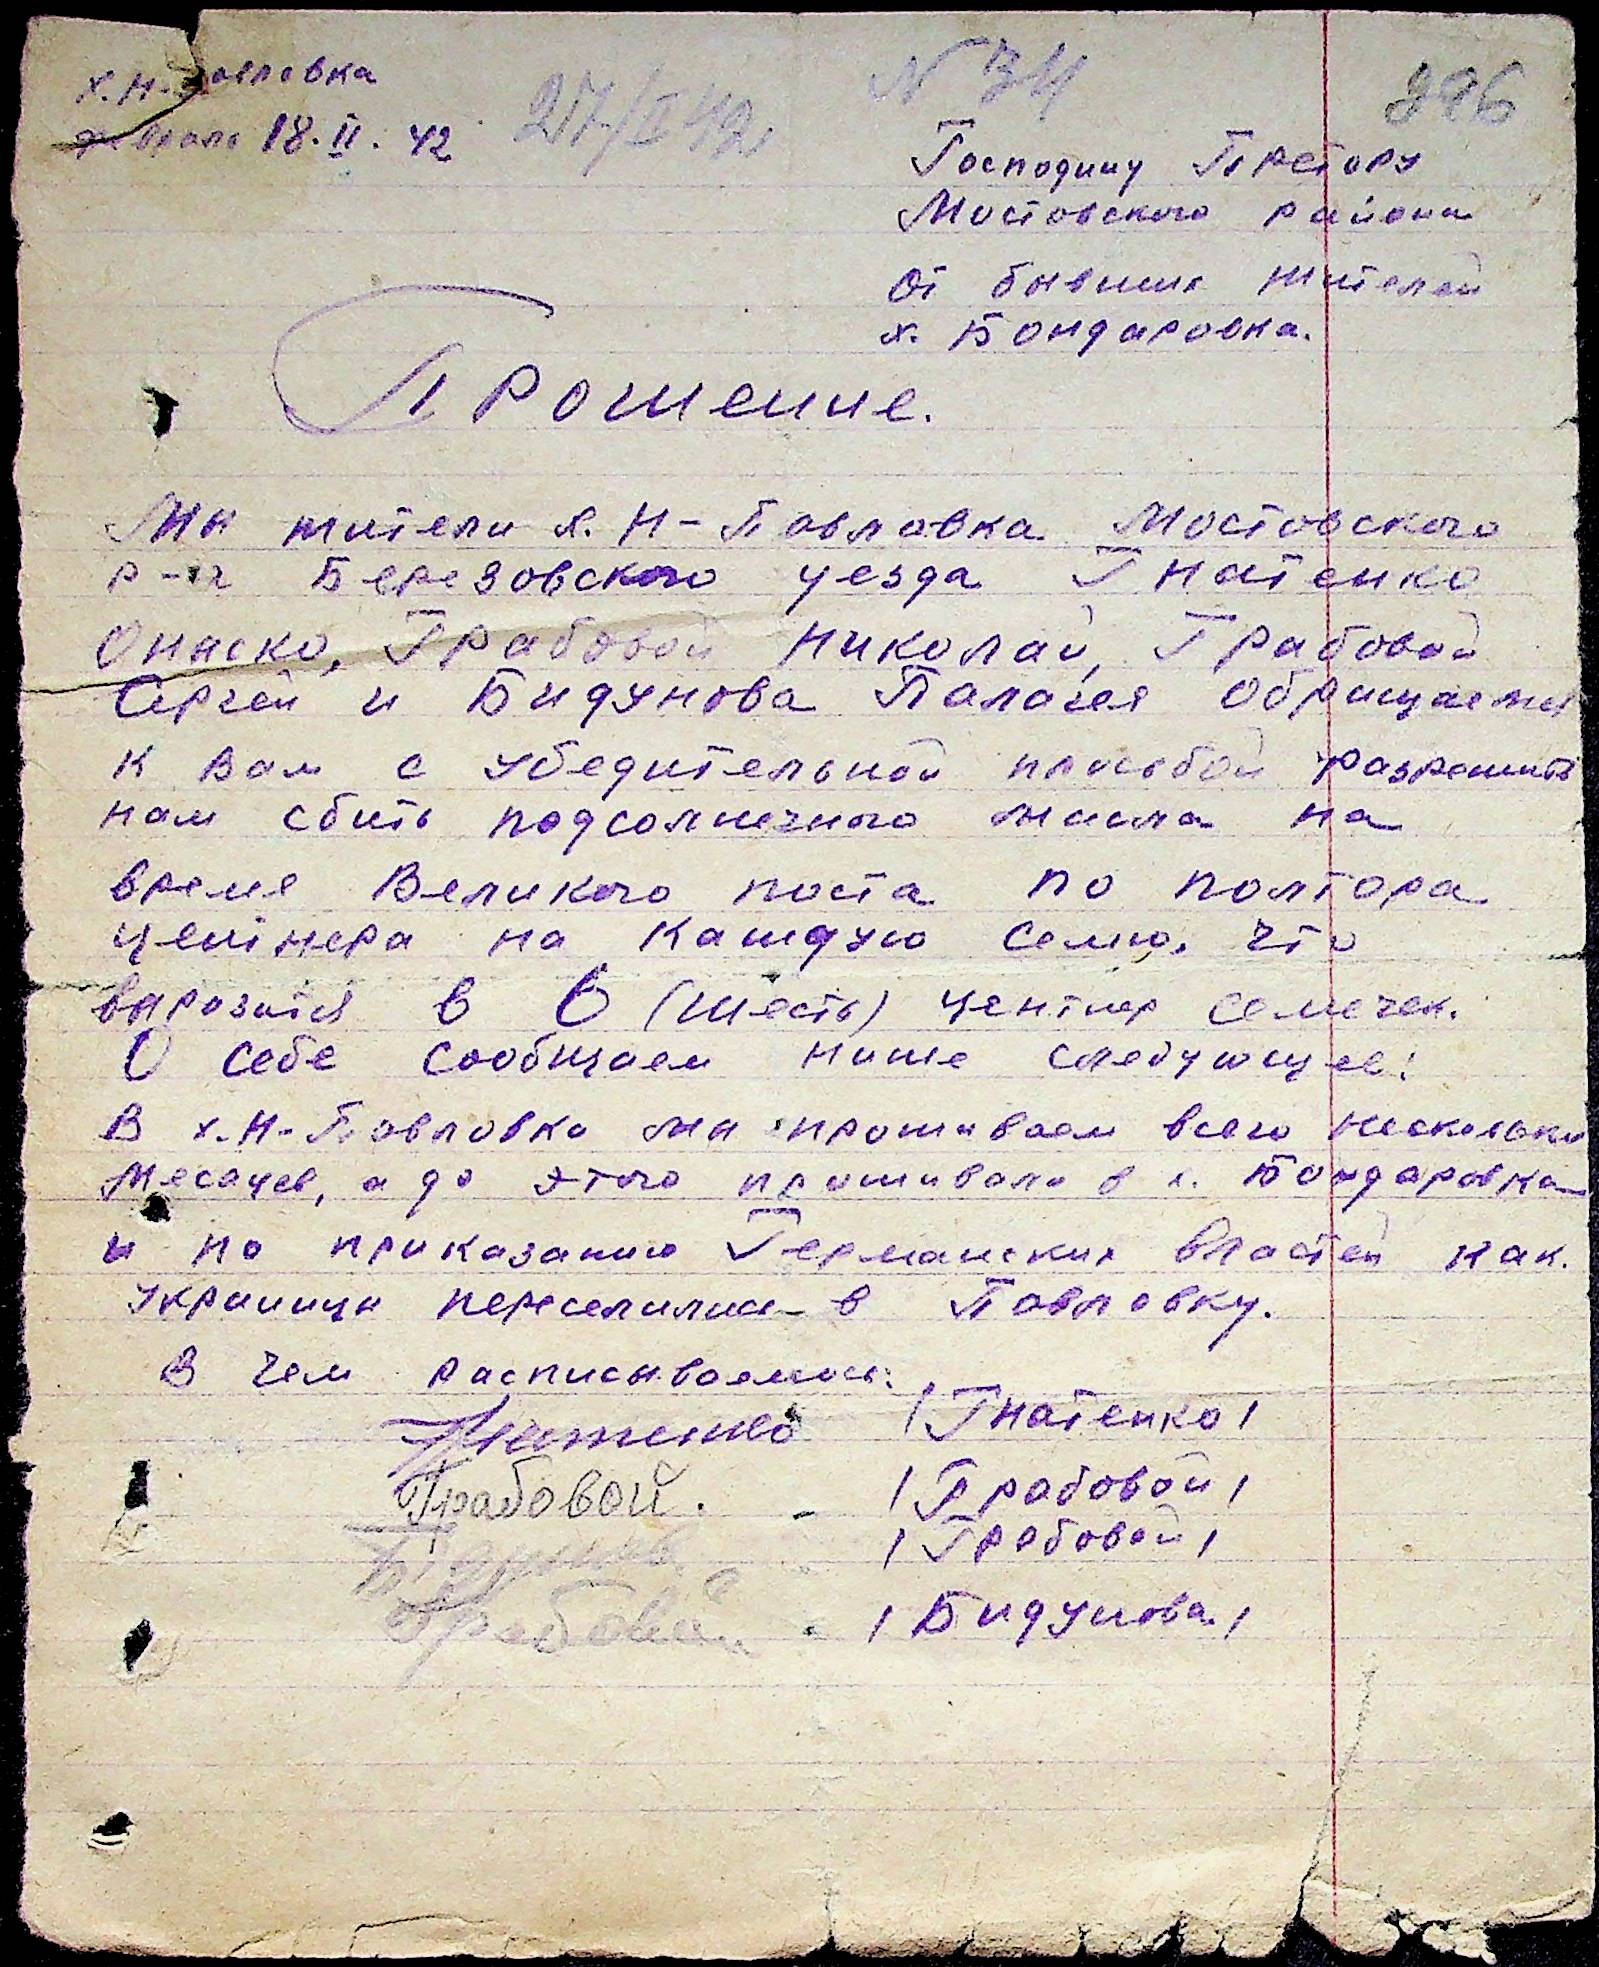 х. Н-Павловка
февраля 18.II.42
27/II 42
N 34
Господину Претору
Мостовского района
От бывших жителей
х. Бондаровка.
Прошение.
Мы жители х. Н-Павловка Мостовского
р-на Березовского уезда Гнатенко
Онаско, Грабовой Николай, Грабовой
Сергей и Бидунова Палагея обращаемся
к Вам с убедительной просьбой разрешить
нам сбить подсолнечного масла на
время Великого поста по полтора
центнера на каждую семю, что
выразится в 6 (шесть) центнер семечек.
О себе сообщаем ниже следующее:
В х. Н-Павловка мы проживаем всего несколько
месяцев, а до этого проживали в х. Бондаровка
и по приказанию Германских властей как
украинцы переселились в Павловку.
В чем расписываемся:
Гнатенко /Гнатенко/
Грабовой. - /Грабовой/
/Грабовой/
Грабовой - /Бидунова/